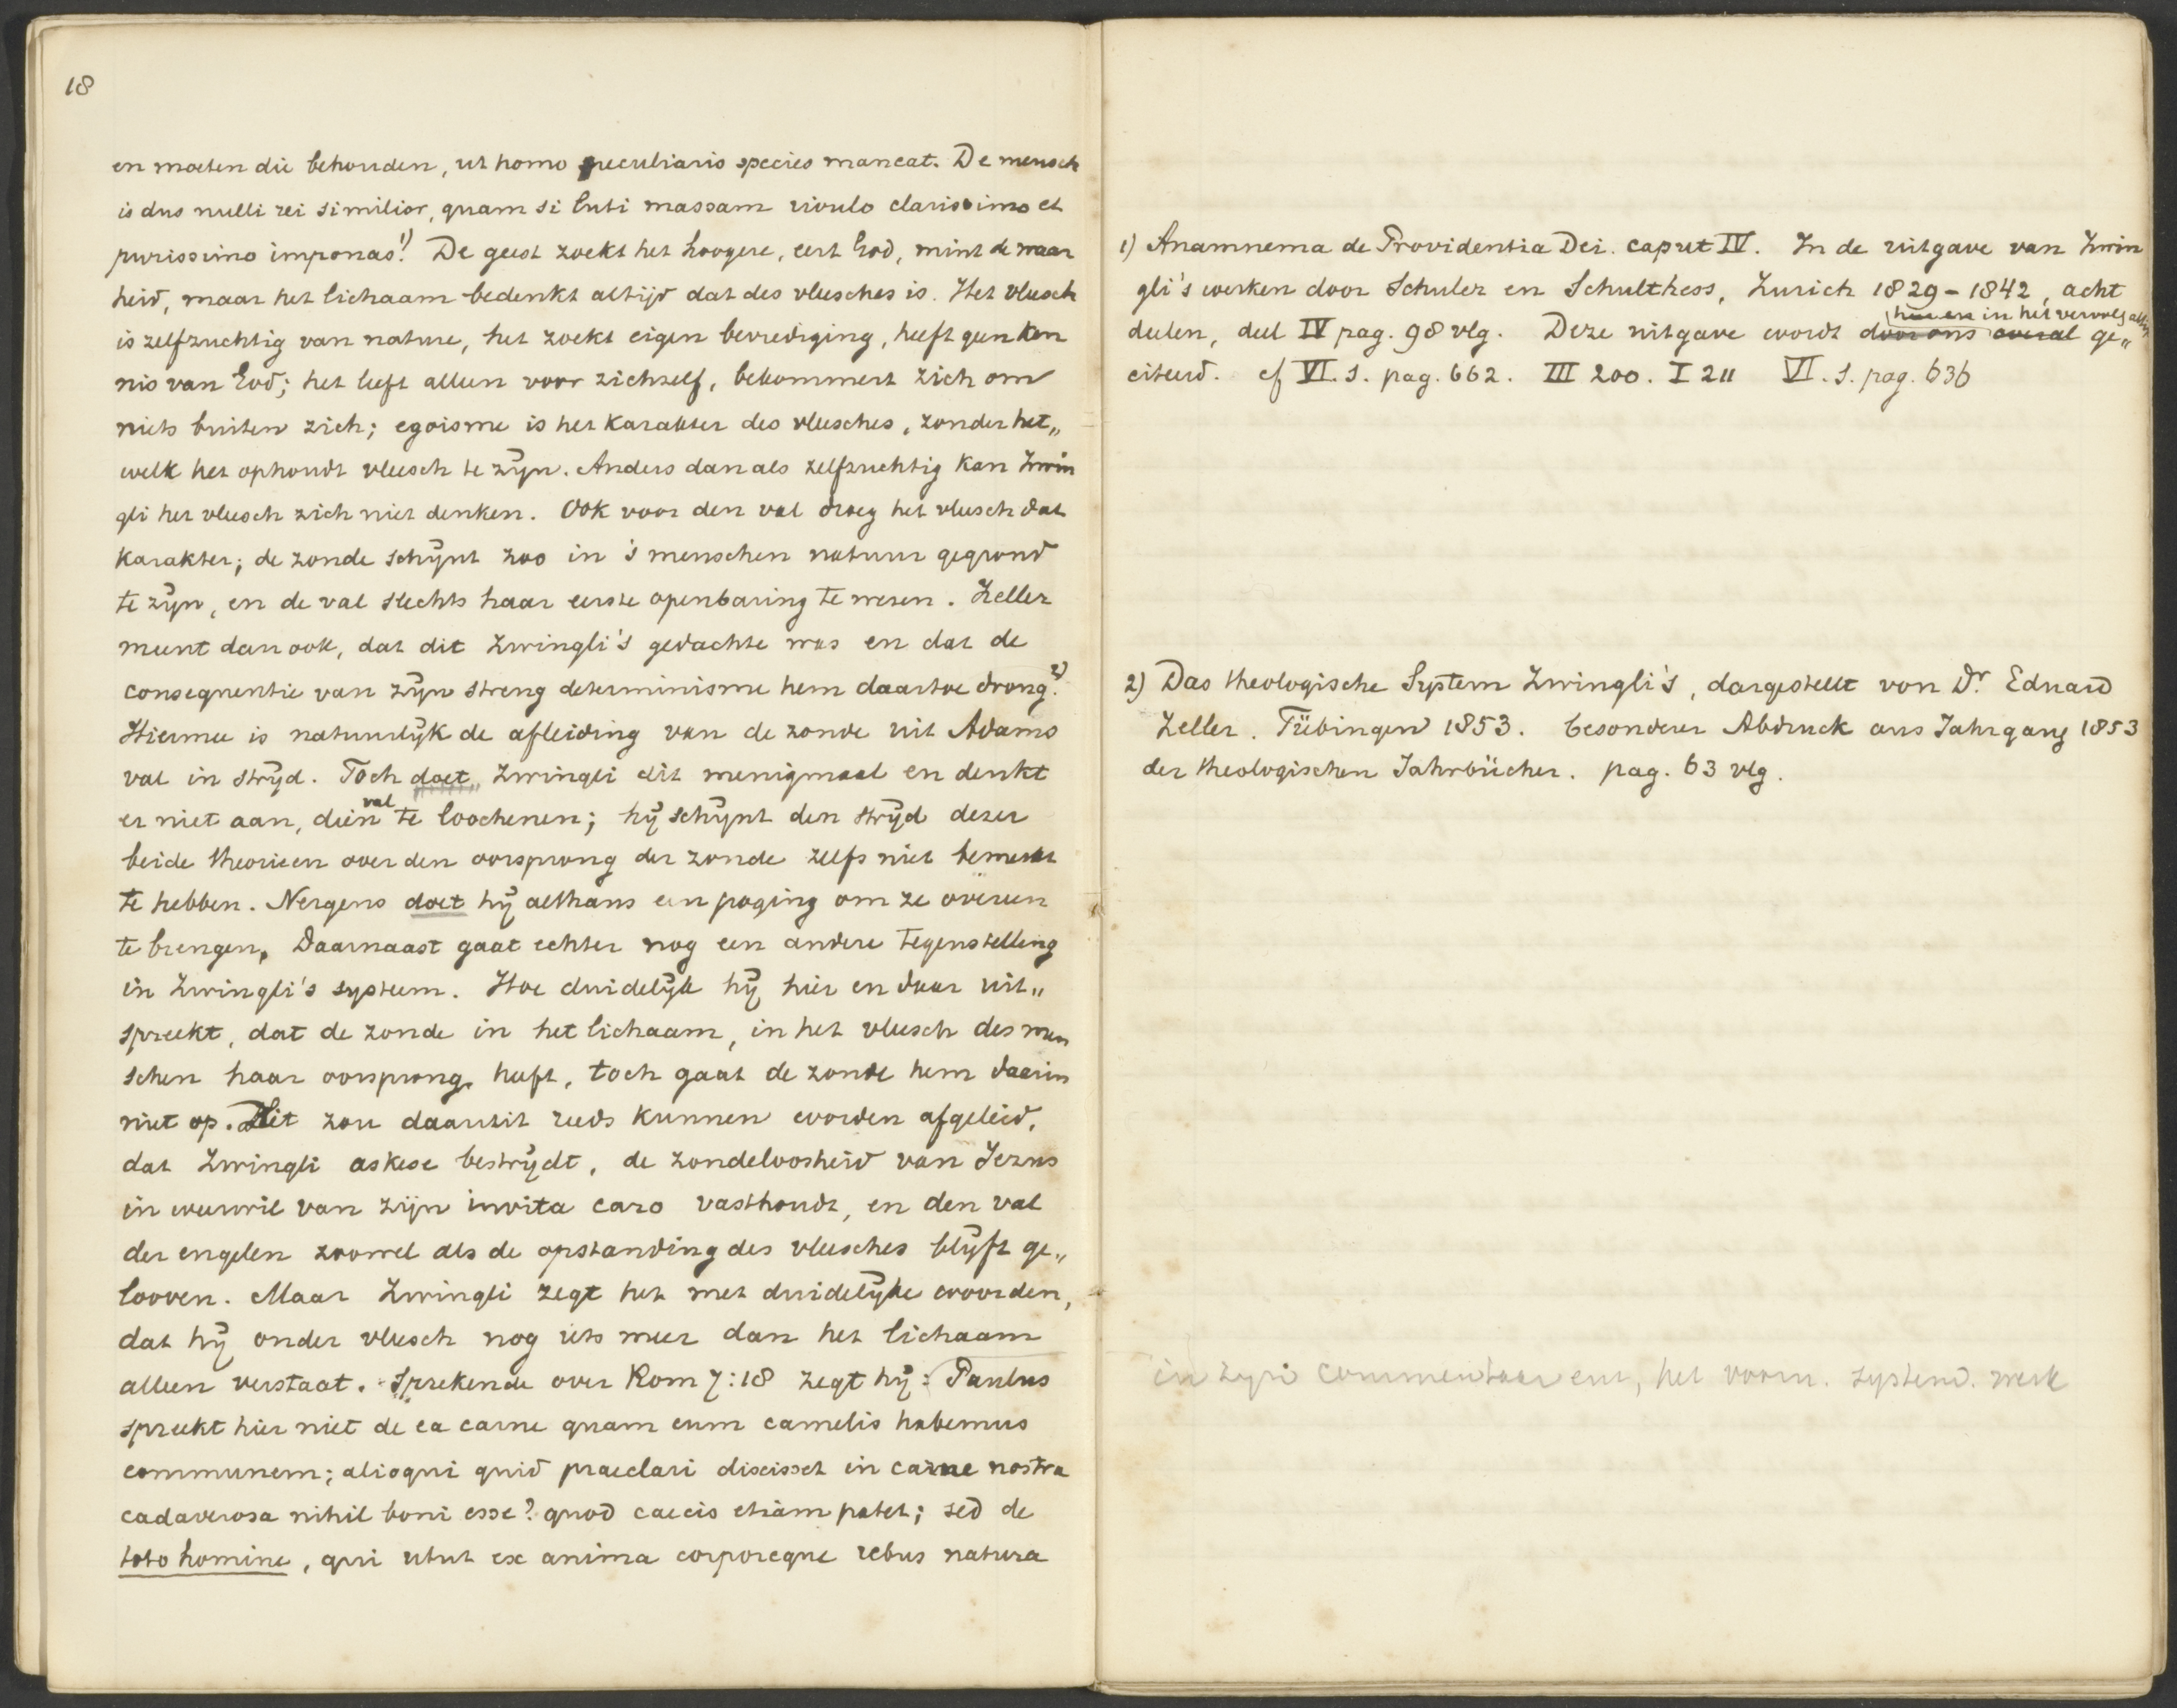 18
en moeten die behouden, ut homo peculiaris species maneat. De mensch
is dus nulli rei similior, quam si luti massam rivulo clarissimo et
purissimo imponas! 1) De geest zoekt het hoogere, eert God, mint de waar
heid, maar het lichaam bedenkt altijd dat des vleesches is. Het vleesch
is zelfzuchtig van nature, het zoekt eigen bevrediging, heeft geen ken
nis van God; het leeft alleen voor zichzelf, bekommert zich om
niets buiten zich; egoisme is het karakter des vleesches, zonder het„
welk het ophoudt vleesch te zijn. Anders dan als zelfzuchtig kan Zwin
gli het vleesch zich niet denken. Ook voor den val droeg het vleesch dat
karakter; de zonde schijnt zoo in 's menschen natuur gegrond
te zijn, en de val slechts haar eerste openbaring te wezen. Zeller
meent dan ook, dat dit Zwingli's gedachte was en dat de
consequentie van zijn streng determinisme hem daartoe drong. 2)
Hiermee is natuurlijk de afleiding van de zonde uit Adams
val in strijd. Toch doet Zwingli dit menigmaal en denkt
er niet aan, dien val te loochenen; hij schijnt den strijd dezer
beide theorieen over den oorsprong der zonde zelfs niet bemerkt
te hebben. Nergens doet hij althans een poging om ze overeen
te brengen. Daarnaast gaat echter nog een andere tegenstelling
in Zwingli's systeem. Hoe duidelijk hij hier en daar uit„
spreekt, dat de zonde in het lichaam, in het vleesch des men
schen haar oorsprong heeft, toch gaat de zonde hem daarin
niet op. Dit zou daaruit reeds kunnen worden afgeleid,
dat Zwingli askese bestrijdt, de zondeloosheid van Jezus
in weerwil van zijn invita caro vasthoudt, en den val
der engelen zoowel als de opstanding des vleesches blijft ge„
looven. Maar Zwingli zegt het met duidelijke woorden,
dat hij onder vleesch nog iets meer dan het lichaam
alleen verstaat. Sprekende over Rom 7:18 zegt hij: Paulus
spreekt hier niet de ea carne quam cum camelis habemus
communem; alioqui quid praeclari dixisset in carne nostra
cadaverosa nihil boni esse? quod caecis etiam patet; sed de
toto homine, qui utut ex anima corporeque rebus natura
1) Anamnema de Providentia Dei. caput IV. In de uitgave van Zwin
gli's werken door Schuler en Schulthess, Zurich 1829-1842, acht
hier en in het vervolg altijd
deelen, deel IV pag. 98 vlg. Deze uitgave wordt door ons overal ge„
citeerd. cf VI. 1. pag. 662. III 200. I 211 VI. 1. pag. 636
2) Das theologische System Zwingli's, dargestellt von Dr. Eduard
Zeller. Tübingen 1853. besonderer Abdruck aus Jahrgang 1853
der theologischen Jahrbücher. pag. 63 vlg.
in zijn commentaar het voorn. system. werk